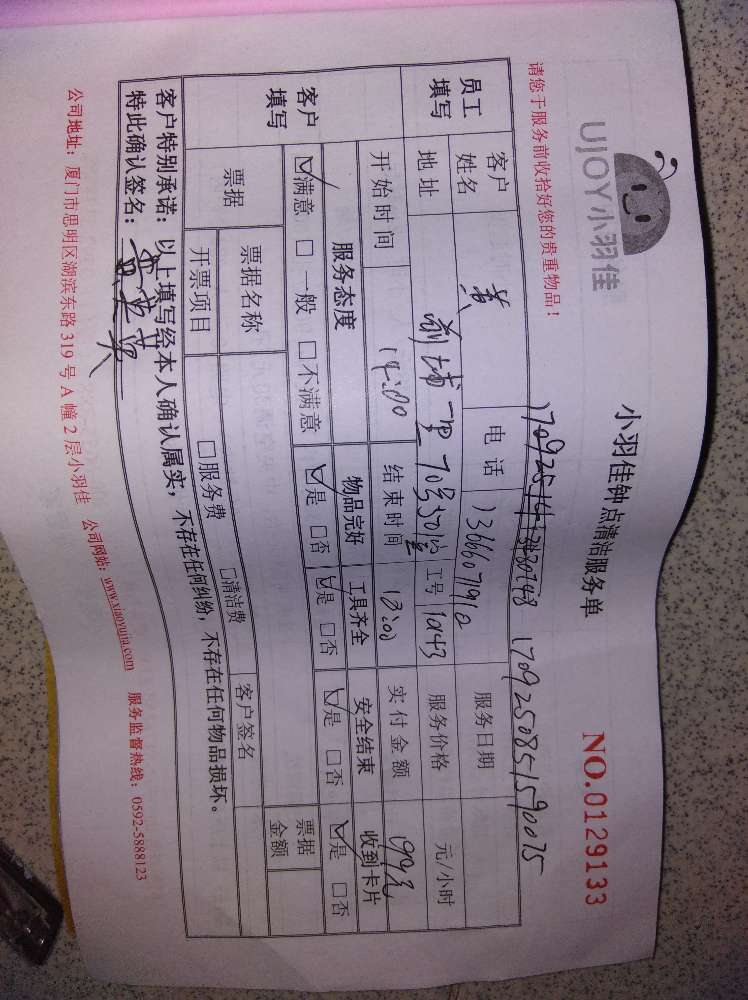 UJOY小羽佳
小羽佳钟点清洁服务单
NO.0129133
请您于服务前收拾好您的贵重物品！
1709250851590075
员工填写
客户姓名 黄 电话 服务日期
地址 工号 1043 服务价格 元/小时
开始时间 结束时间 实付金额
客户填写
服务态度 物品完好 工具齐全 安全结束 收到卡片
☑满意 □一般 □不满意 ☑是 □否 ☑是 □否 ☑是 □否 ☑是 □否
票据 票据名称 客户签名 票据金额
开票项目 □服务费 □清洁费
客户特别承诺：以上填写经本人确认属实，不存在任何纠纷，不存在任何物品损坏。
特此确认签名：
公司地址：厦门市思明区湖滨东路319号A幢2层小羽佳 公司网站：www.xiaoyujia.com 服务监督热线：0592-5888123